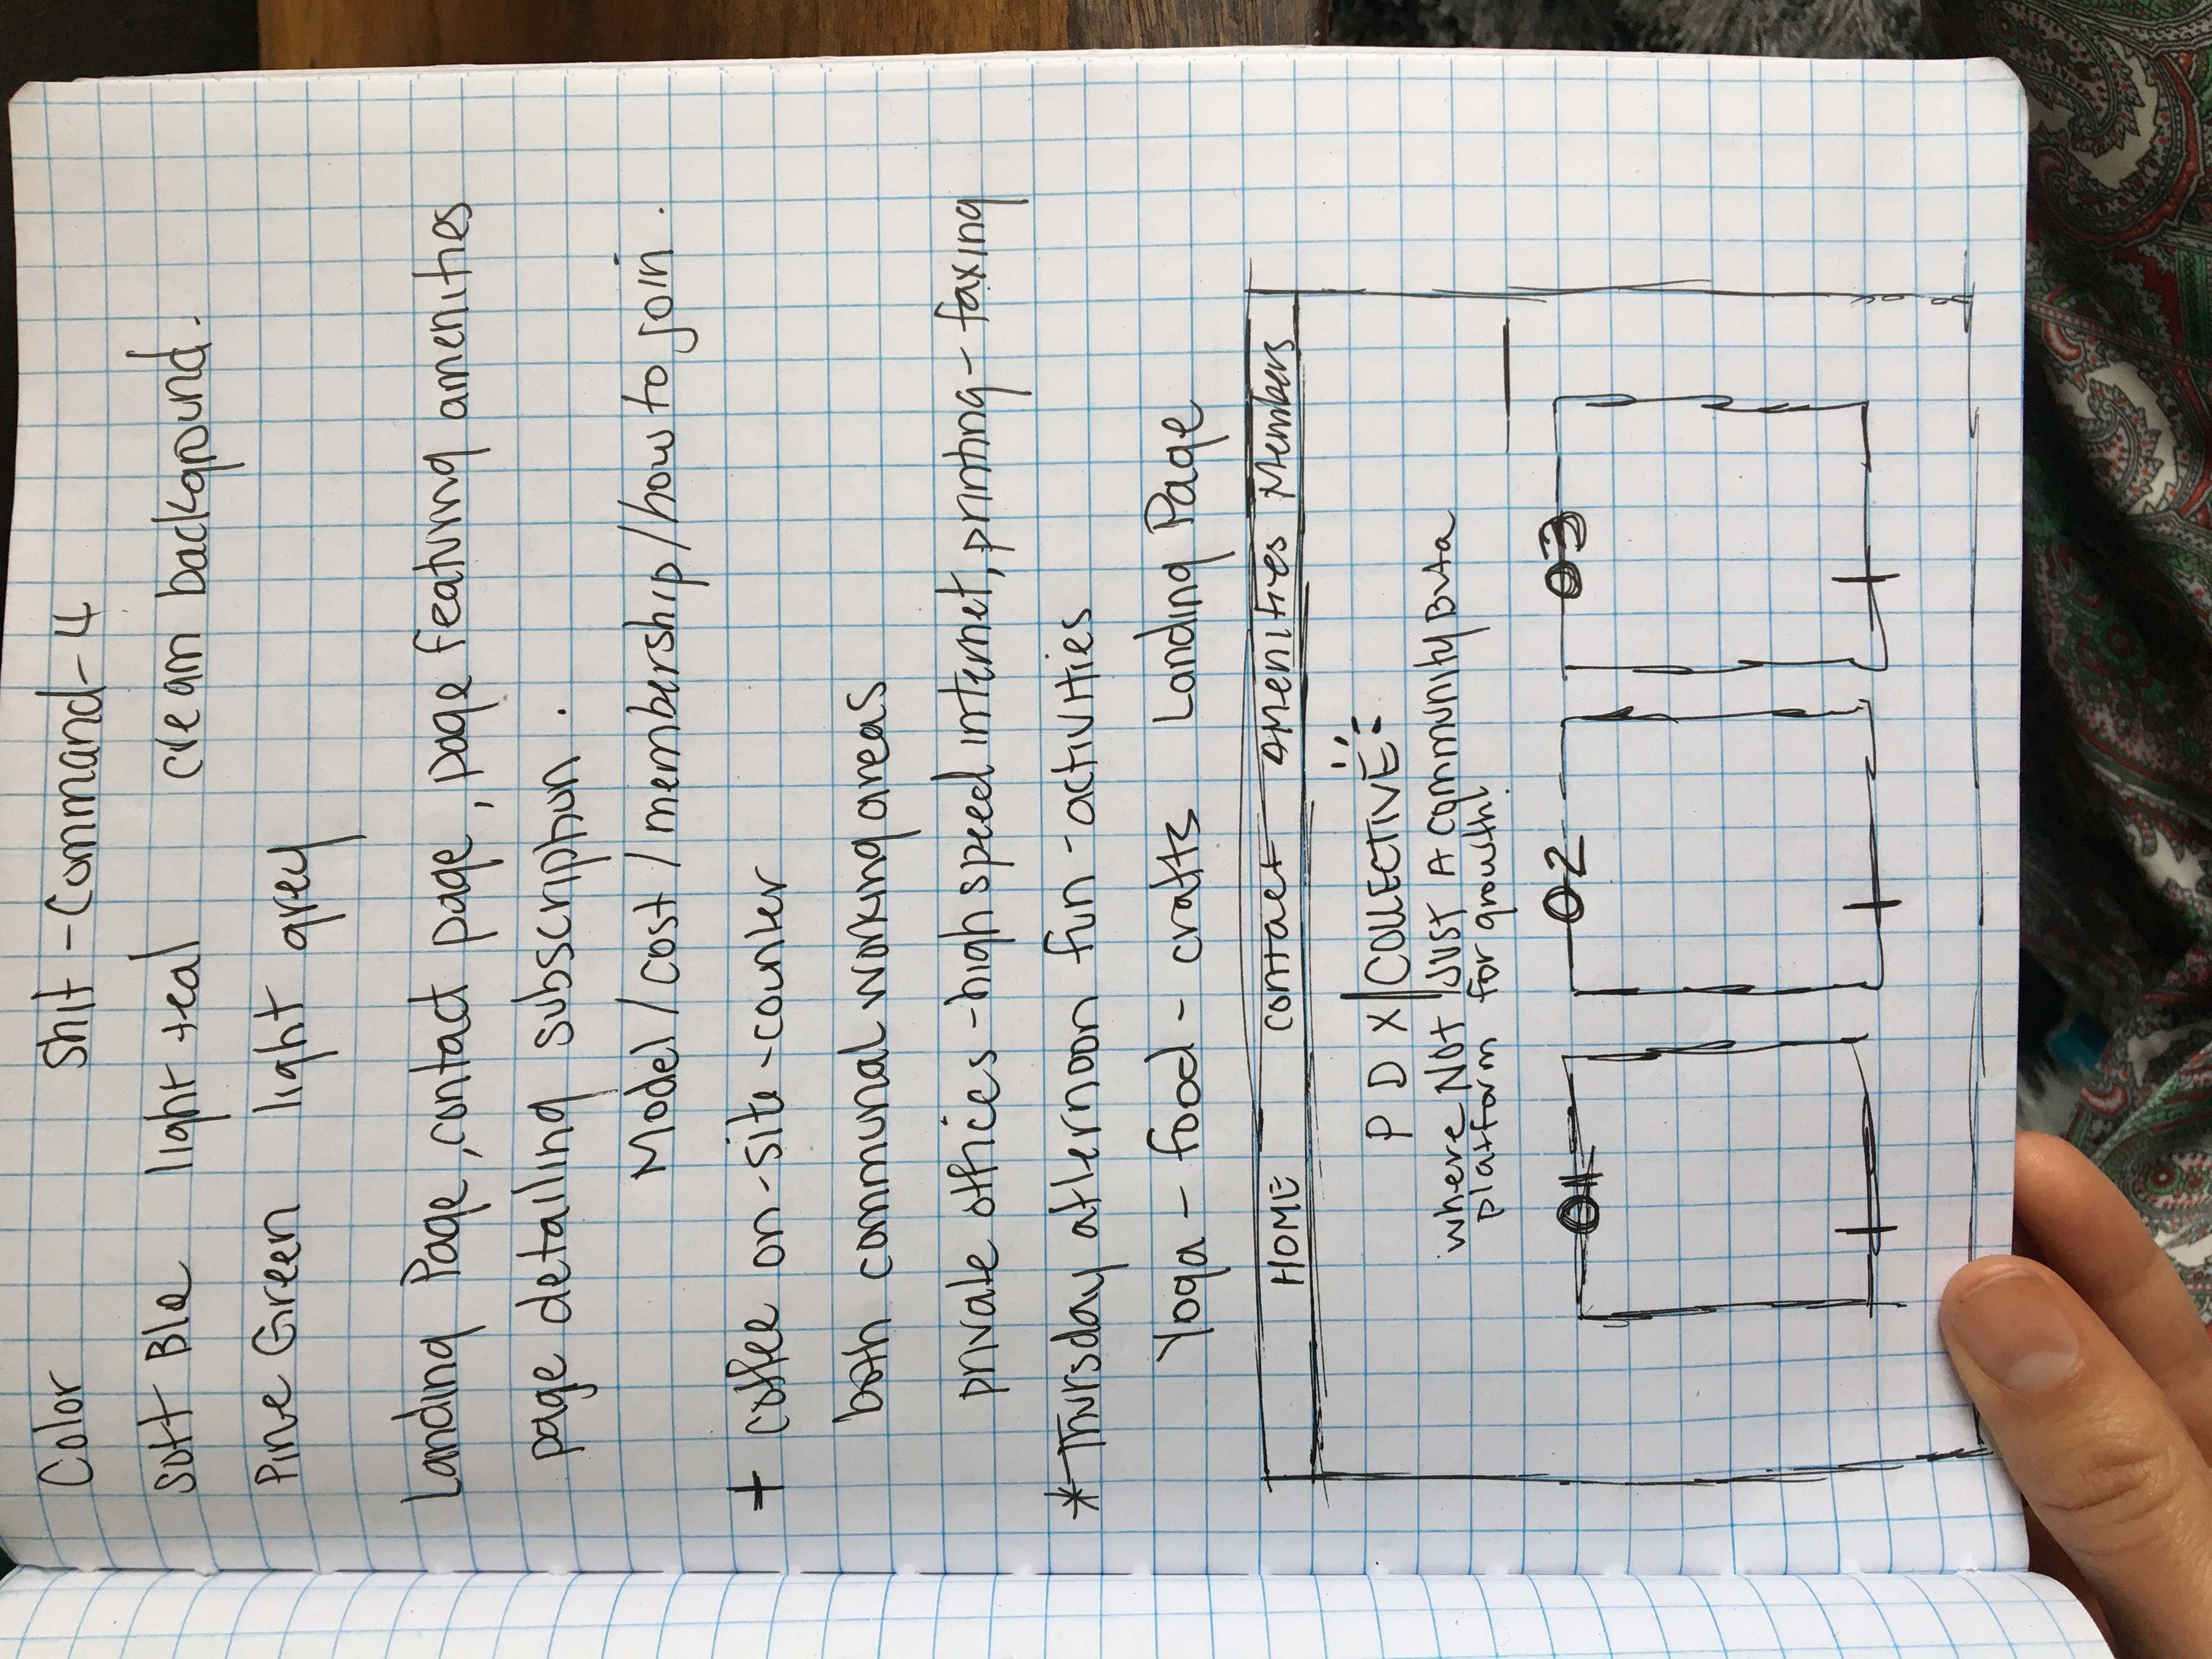 Color Shit - Command - 4
Soft Ble light teal cream background.
Pine Green light grey
Landing Page, contact page, page featuring amenities
page detailing subscription.
Model / cost / membership / how to join.
+ coffee on-site-counter
both communal working areas
private offices - high speed internet, printing - faxing
* Thursday afternoon fun - activities
Yoga - food - crafts Landing Page
HOME Contact Amenities Members
PDX|COLLECTIVE
where NOT JUST A community But a
platform for growth!
01 02 03